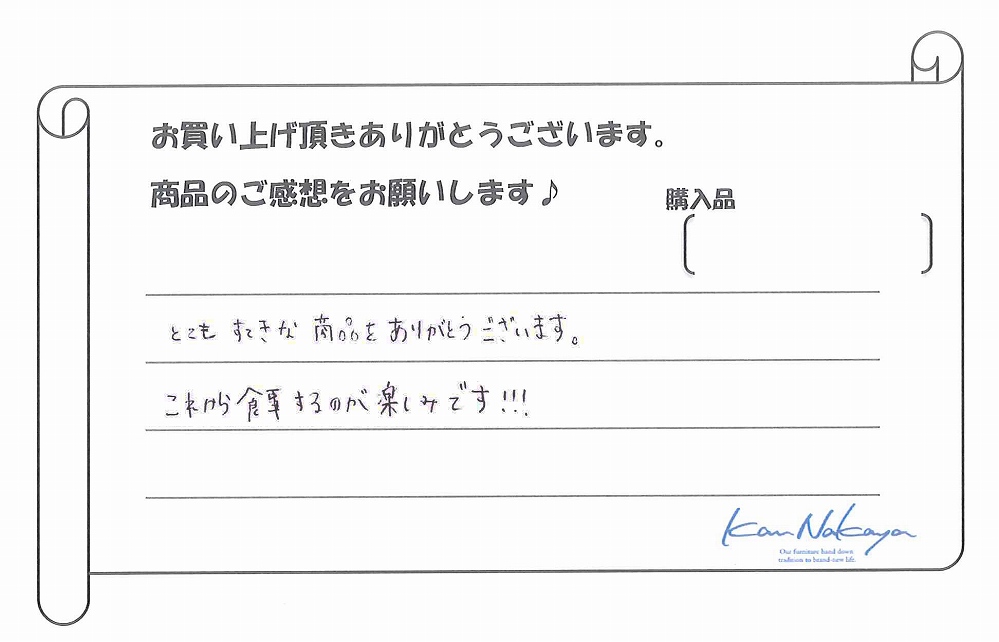 お買い上げ頂きありがとうございます。
商品のご感想をお願いします♪
購入品
とても すてきな 商品を ありがとう ございます。
これから食事するのが楽しみです!!!
Kan Nakaya
Our furniture hand down
tradition to brand-new life.